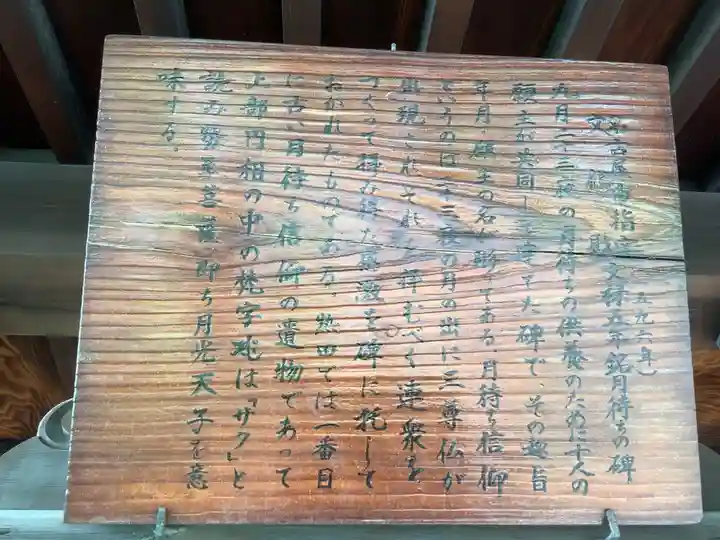 名古屋市指定 文禄五年銘月待ちの碑
文化財 (一五九六年)
九月二十三夜の月待ちの供養のために十人の
願主が共同して立てた碑で、その趣旨
年月、願主の名が彫ってある。月待ち信仰
というのは二十三夜の月の出に三尊仏が
出現されそれを拝むべく連衆を
つくって拝み得た感激を碑に托して
おかれたものである。熱田では一番目
に古い月待ち信仰の遺物であって
上部円相の中の梵字は「サク」と
読み勢至菩薩即ち月光天子を意
味する。